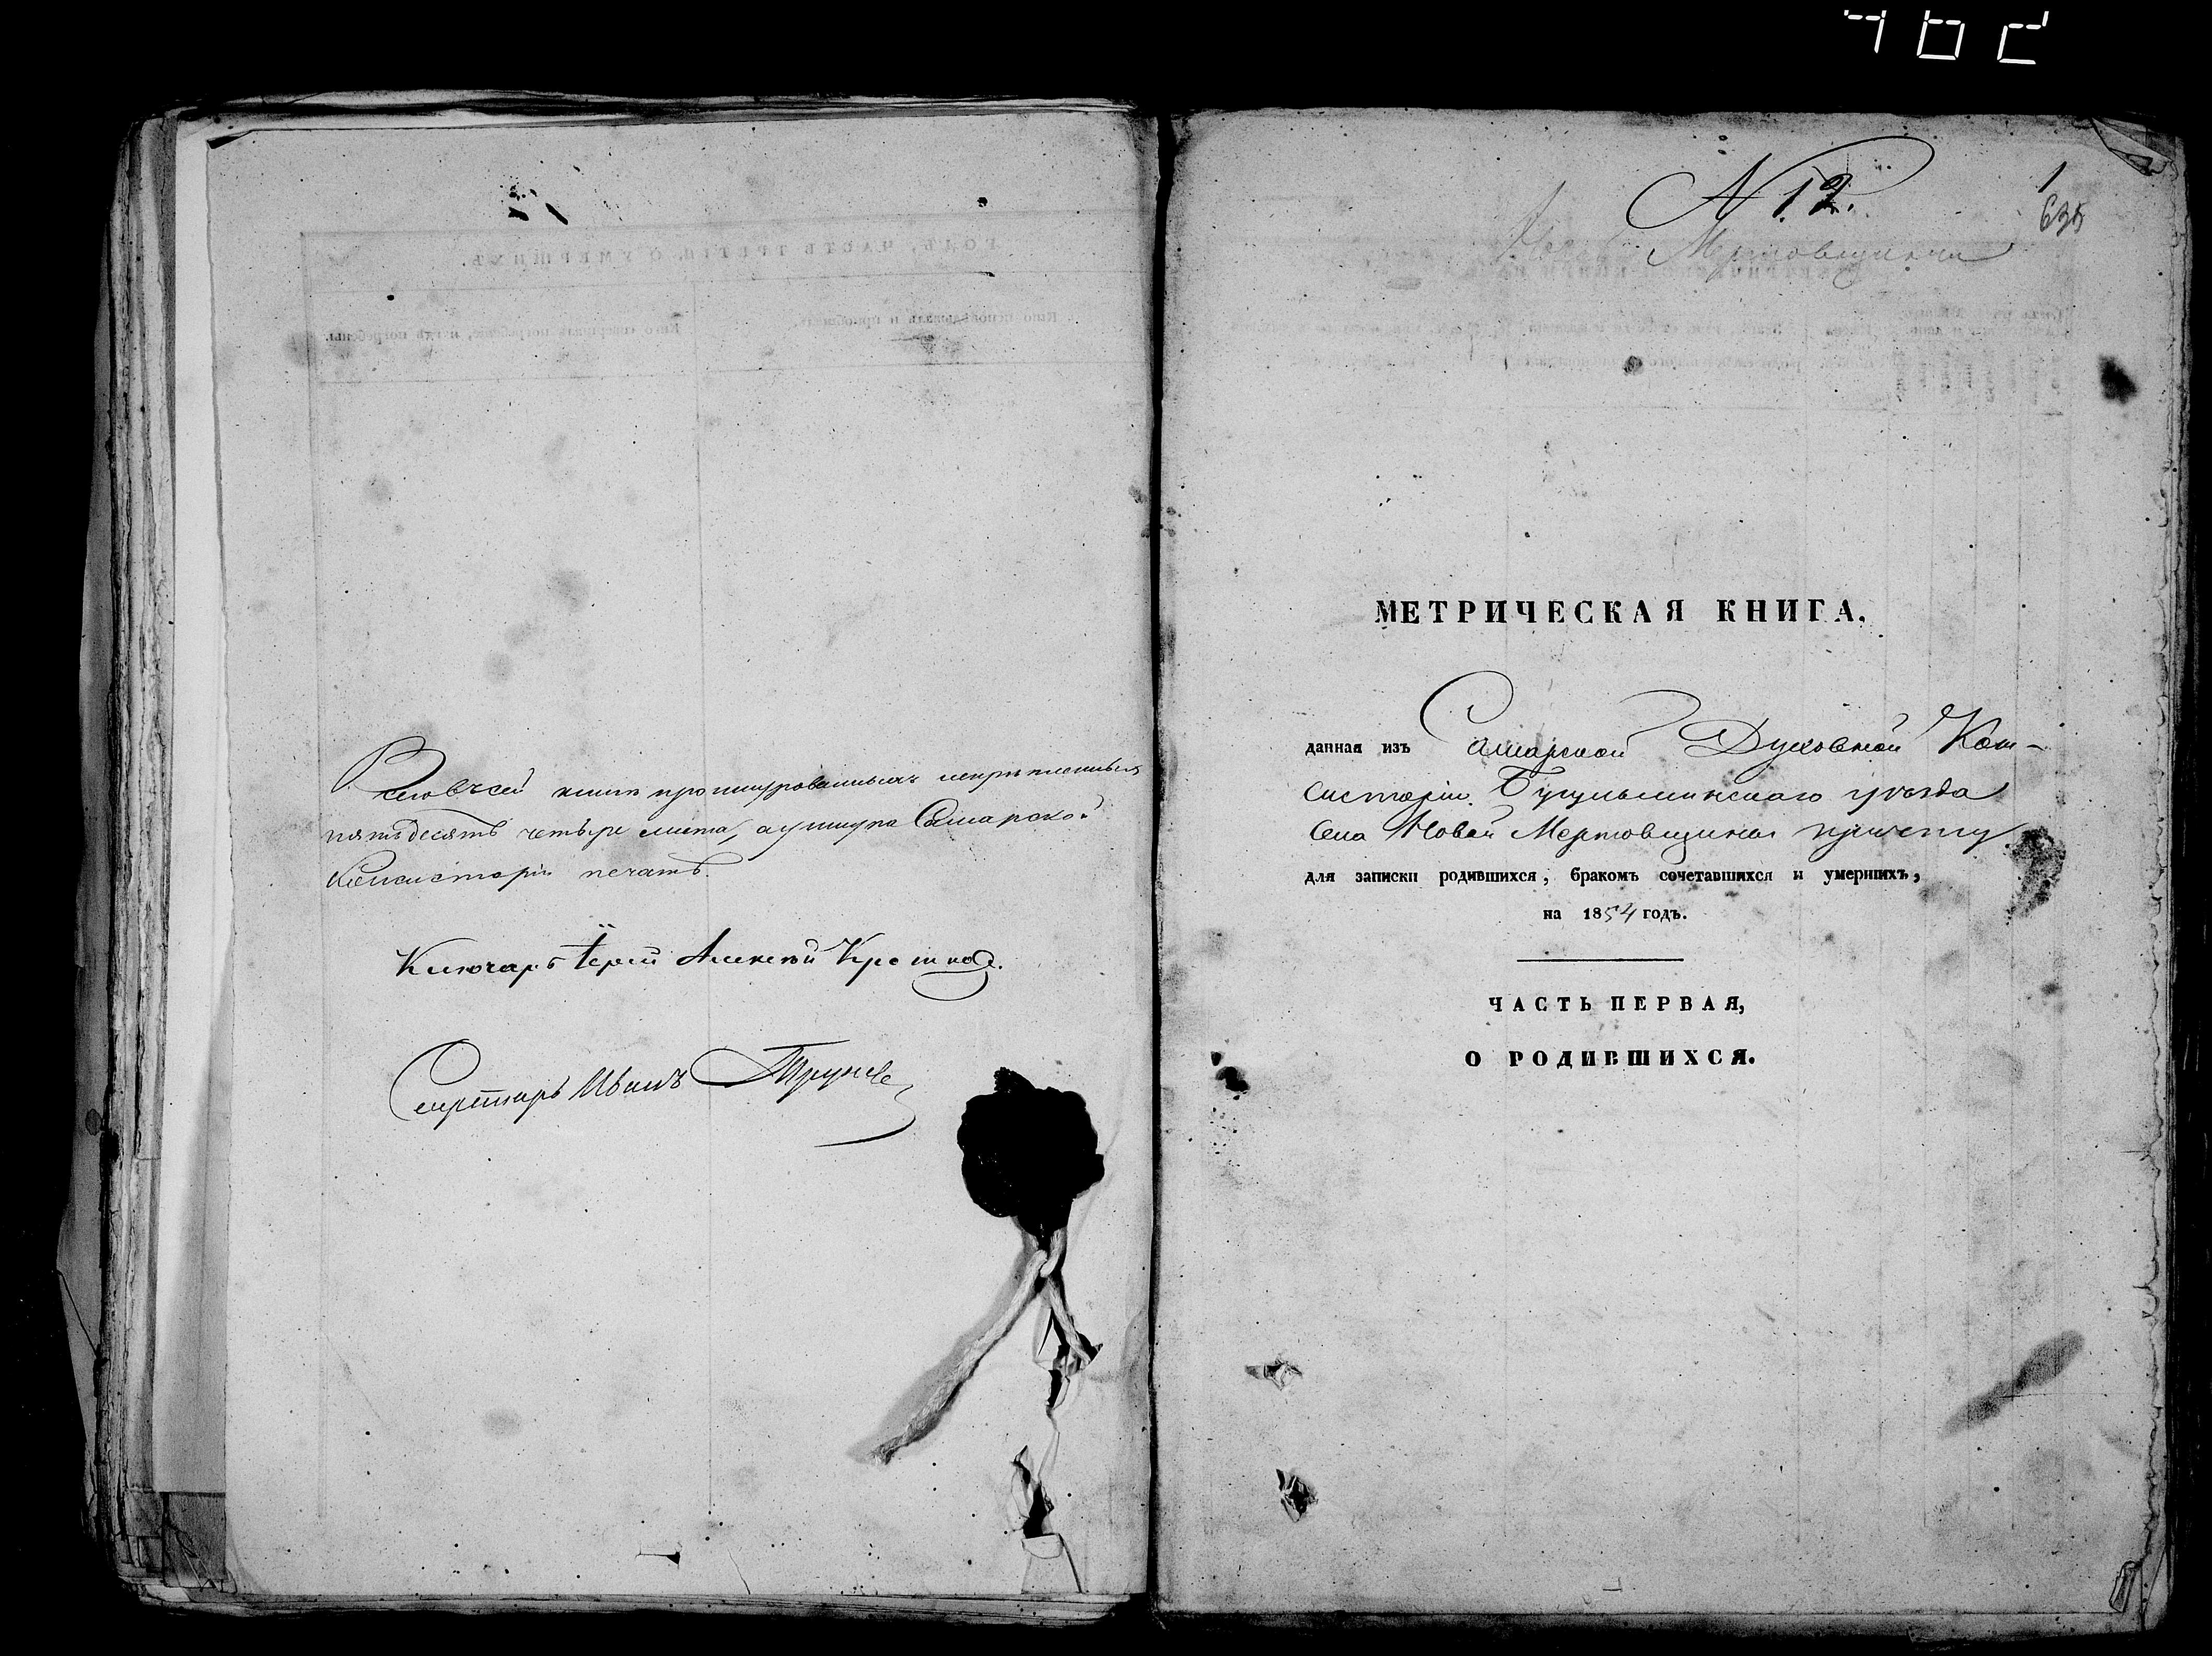 Всего въ сей книгѣ прошнурованныхъ и скрѣпленныхъ
пятьдесятъ четыре листа, а у шнура Самарской
Консисторіи печать.
Ключарь Іерей Алексѣй Кротков.
Секретарь Иванъ
N 12.
1
Мертовщина
МЕТРИЧЕСКАЯ КНИГА,
данная изъ Самарской Духовной Кон-
систоріи Бугульминскаго уѣзда
Села Новой Мертовщины причту
для записки родившихся, бракомъ сочетавшихся и умершихъ,
на 1854 годъ.
ЧАСТЬ ПЕРВАЯ,
О РОДИВШИХСЯ.